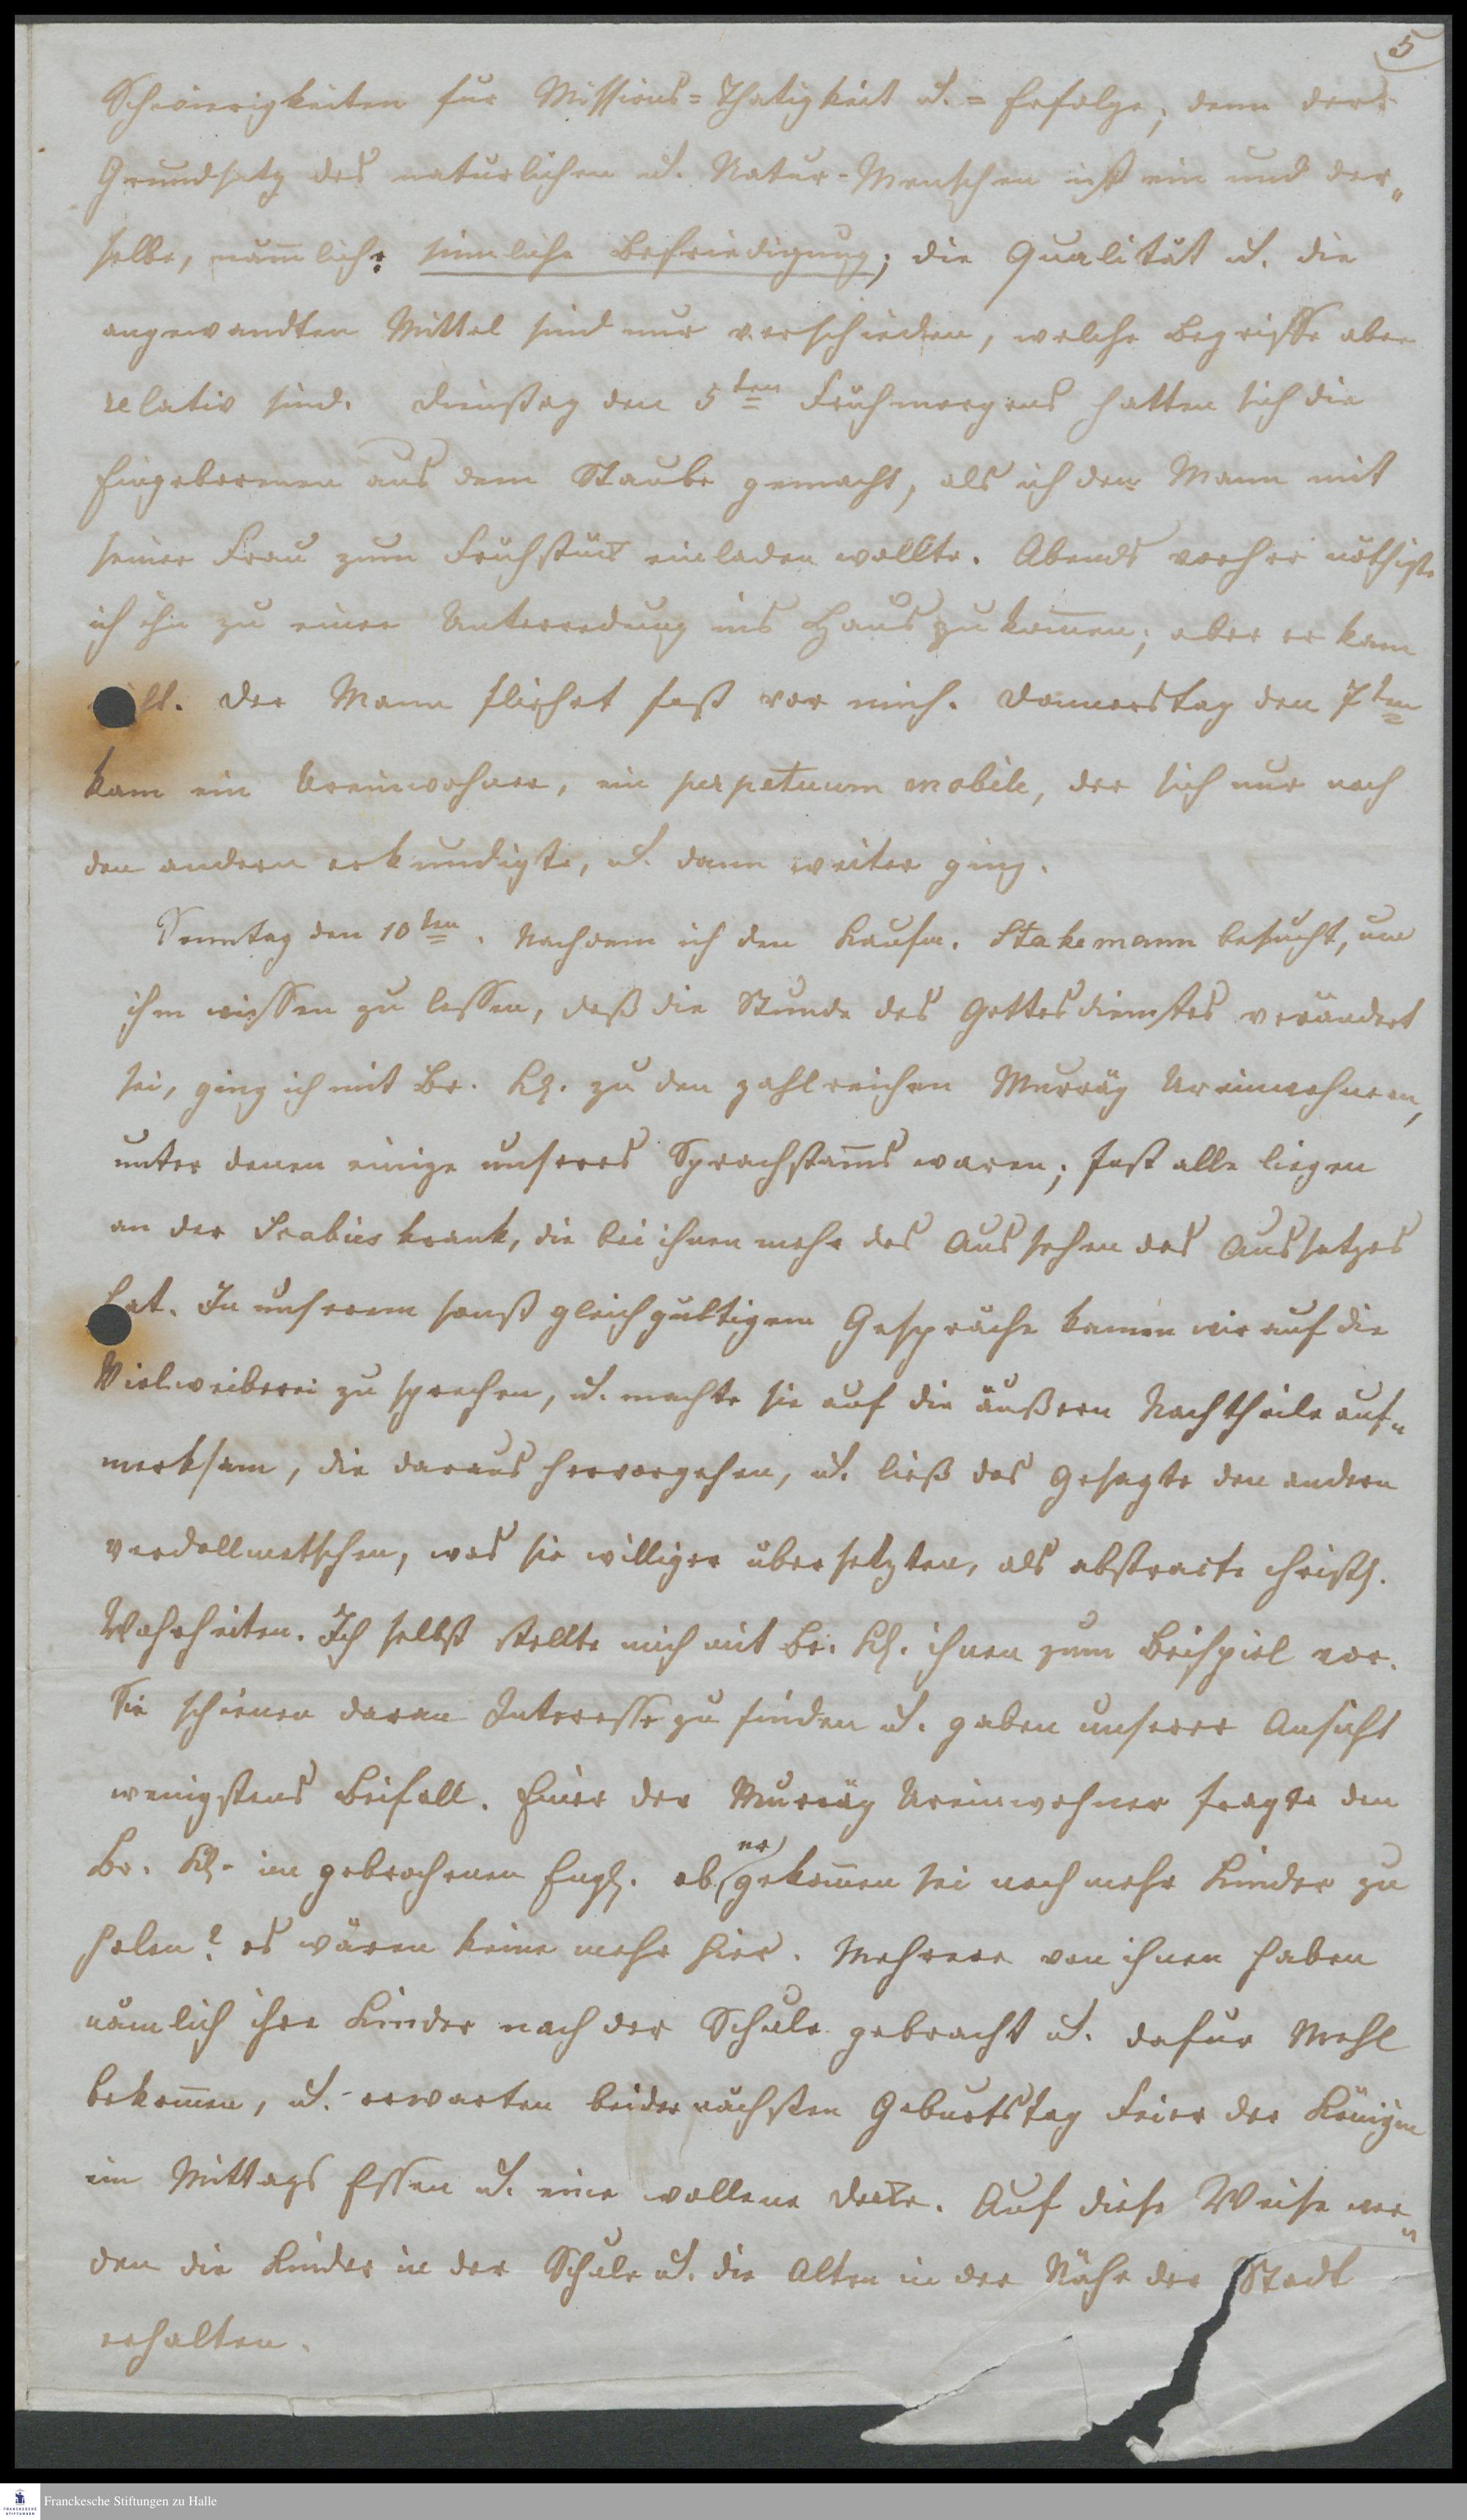 5
Schwierigkeiten fur Missions=Thatigkeit u. =Erfolge; denn der
Grundsatz des naturlichen u. Natur-Menschen ist ein und der„
selbe, nämlich: sinnliche Befriedigung; die Qualität u. die
angewandten Mittel sind nur verschieden, welche Begriffe aber
relativ sind. Dienstag den 5ten Frühmorgens hatten sich die
Eingebornen aus dem Staube gemacht, als ich den Mann mit
seiner Frau zum Fruhstück einladen wollte. Abends vorher nöthigte
ich ihn zu einer Unterredung ins Haus zu kom̄en; aber er kam
Der Mann fliehet fast vor mich. Donnerstag den 7ten
kam ein Ureinwohner, ein perpetuum mobile, der sich nur nach
den andern erkundigte, u. dann weiter ging.
Sonntag den 10ten. Nachdem ich den Kaufm. Stakemann besucht, um
ihm wissen zu lassen, daß die Stunde des Gottesdienstes verändert
sei, ging ich mit Br. Kl. zu den zahlreichen Murray Ureinwohnern,
unter denen einige unseres Sprachstam̄s waren; fast alle liegen
an der Scabies krank, die bei ihnen mehr das Aussehen des Aussatzes
hat. In unserem sonst gleichgultigem Gespräche kamen wir auf die
Vielweiberei zu sprechen, u. machte sie auf die äußern Nachtheile auf„
merksam, die daraus hervorgehen, u. ließ das Gesagte den andern
verdollmetschen, was sie williger übersetzten, als abstracte christl.
Wahrheiten. Ich selbst stellte mich mit Br. Kl. ihnen zum Beispiel vor.
Sie schienen daran Interesse zu finden u. gaben unserer Ansicht
wenigstens Beifall. Einer der Murray Ureinwohner fragte den
Br. Kl. im gebrochenen Engl. ob er gekom̄en sei noch mehr Kinder zu
holen? es wären keine mehr hier. Mehrere von ihnen haben
nämlich ihre Kinder nach der Schule gebracht u. dafur Mehl
bekom̄en, u. erwarten bei der nächsten Geburtstag Feier der Königin
ein Mittags Essen u. eine wollene Decke. Auf diese Weise wer„
den die Kinder in der Schule u. die Alten in der Nähe der Stadt
erhalten.
Franckesche Stiftungen zu Halle